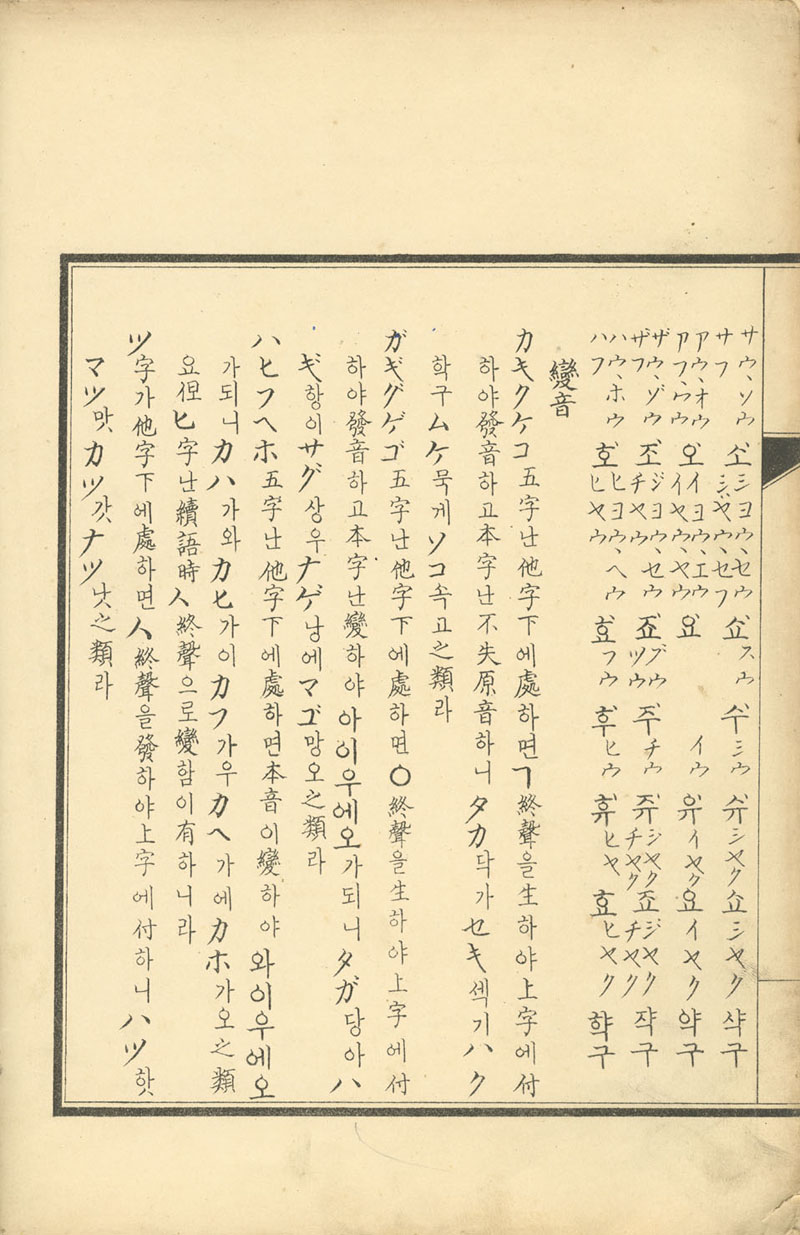 サウ、ソウ サフ 소 シヨウ、セウ シヤウ、セフ 쇼 スウ 수 シウ 슈 シヤク 쇼 シヤク 샥구
アウ、オウ アフ、ウウ 오 イヨウ、エウ イヤウ、ヤウ 요 イウ 유 イヤク 요 イヤク 약구
ザウ、ゾウ ザフ 조 ジヨウ、セウ チヤウ 죠 ヅウ ツウ 주 チウ 쥬 ジヤク チヤク 죠 ジヤク チヤク 쟉구
ハウ、ホウ ハフ 호 ヒヨウ、ヘウ ヒヤウ 효 フウ 후 ヒウ 휴 ヒヤク 효 ヒヤク 햑구
變音
カキクケコ五字난他字下에處하면ㄱ終聲을生하야上字에付
하야發音하고本字난不失原音하니タカ닥가セキ섹기ハク
학구ムケ묵게ソコ속고之類라
ガギグゲゴ五字난他字下에處하면ㅇ終聲을生하야上字에付
하야發音하고本字난變하야아이우에오가되니タガ당아ハ
ギ항이サグ상우ナゲ낭에マゴ망오之類라
ハヒフヘホ五字난他字下에處하면本音이變하야와이우에오
가되니カハ가와カヒ가이カフ가우カヘ가에カホ가오之類
요但ヒ字난續語時ㅅ終聲으로變함이有하니라
ツ字가他字下에處하면ㅅ終聲을發하야上字에付하니ハツ핫
マツ맛カツ갓ナツ낫之類라